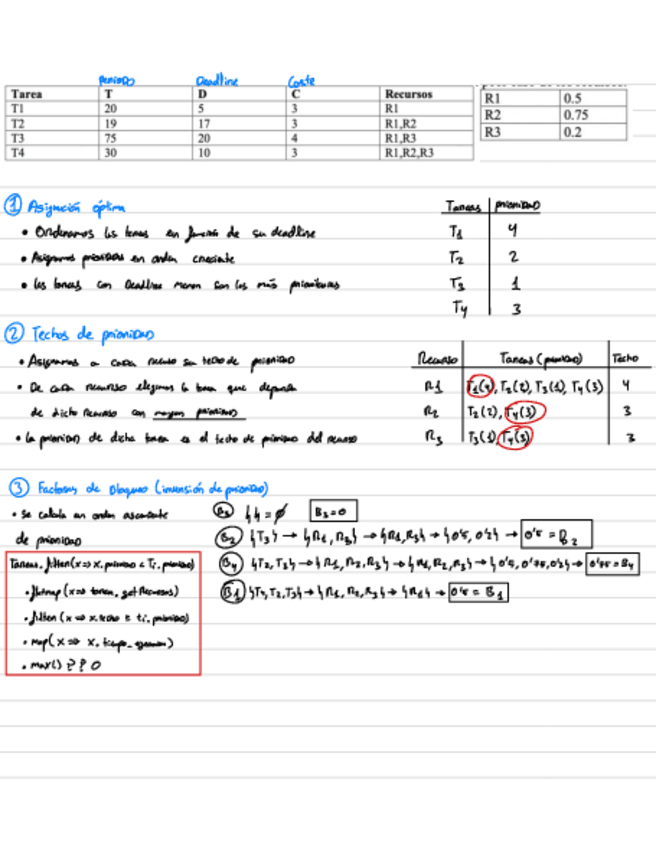 periodo Deadline Coste
Tarea T D C Recursos
T1 20 5 3 R1
T2 19 17 3 R1,R2
T3 75 20 4 R1,R3
T4 30 10 3 R1,R2,R3
R1 0.5
R2 0.75
R3 0.2
① Asignación óptima
• Ordenamos las tareas en función de su deadline
• Asignamos prioridades en orden creciente
• Las tareas con Deadline menor son las más prioritarias
Tareas prioridad
T1 4
T2 2
T3 1
T4 3
② Techos de prioridad
• Asignamos a cada recurso su techo de prioridad
• De cada recurso elegimos la tarea que dependa
de dicho recurso con mayor prioridad
• La prioridad de dicha tarea es el techo de prioridad del recurso
Recurso Tareas (prioridad) Techo
R1 T1(4), T2(2), T3(1), T4(3) 4
R2 T2(2), T4(3) 3
R3 T3(1), T4(3) 3
③ Factores de bloqueo (inversión de prioridad)
• se calcula en orden ascendente
de prioridad
Tareas.filter(x=> x.prioridad < Ti.prioridad)
• flatmap(x=> tarea.getRecursos)
• filter(x=> x.techo ≥ ti.prioridad)
• map(x=> x.tiempo_
• max() ?? 0
B3 {} = ∅ B3=0
B2 {T3} → {R1, R3} → {R1, R3} → {0'5, 0'2} → 0'5 = B2
B4 {T2, T3} → {R1, R2, R3} → {R1, R2, R3} → {0'5, 0'75, 0'2} → 0'75 = B4
B1 {T4, T2, T3} → {R1, R2, R3} → {R1} → 0'5 = B1